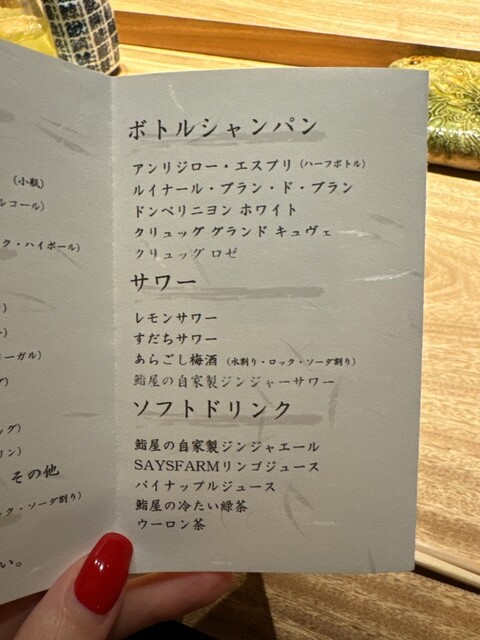 (小瓶)
ルコール)
ク・ハイボール)
リーガル)
ッグ)
リン)
その他
ク・ソーダ割り)
い。
ボトルシャンパン
アンリジロー・エスプリ (ハーフボトル)
ルイナール・ブラン・ド・ブラン
ドンペリニヨン ホワイト
クリュッグ グランド キュヴェ
クリュッグ ロゼ
サワー
レモンサワー
すだちサワー
あらごし梅酒 (水割り・ロック・ソーダ割り)
鮨屋の自家製ジンジャーサワー
ソフトドリンク
鮨屋の自家製ジンジャエール
SAYSFARMリンゴジュース
パイナップルジュース
鮨屋の冷たい緑茶
ウーロン茶